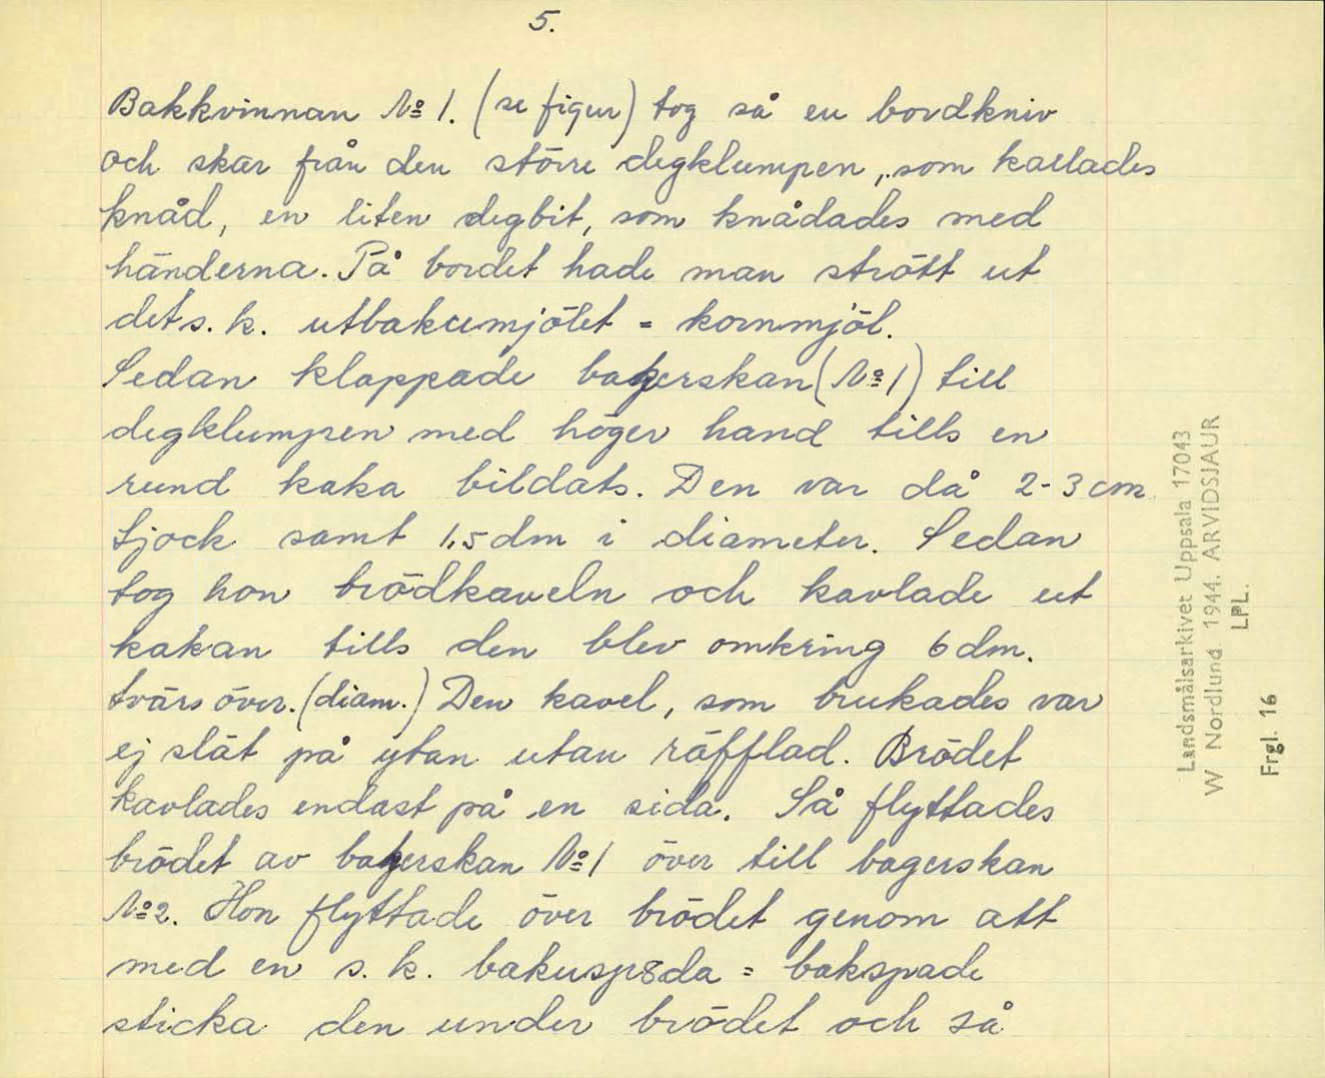 5.
Bakkvinnan № 1. (se figur) tog så en bordkniv
och skar från den större degklumpen, som kallades
knåd, en liten degbit, som knådades med
händerna. På bordet hade man strött ut
det s.k. utbakumjölet = kornmjöl.
Sedan klappade bagerskan (№ 1) till
degklumpen med höger hand tills en
rund kaka bildats. Den var då 2-3 cm
tjock samt 1,5 dm i diameter. Sedan
tog hon brödkaveln och kavlade ut
kakan tills den blev omkring 6 dm.
tvärs över. (diam.) Den kavel, som brukades var
ej slät på ytan utan räfflad. Brödet
kavlades endast på en sida. Så flyttades
brödet av bagerskan № 1 över till bagerskan
№ 2. Hon flyttade över brödet genom att
med en s.k. bakusp8da = bakspade
sticka den under brödet och så
Landsmålsarkivet Uppsala 17043
W Nordlund 1944. ARVIDSJAUR
LPL.
Frgl. 16